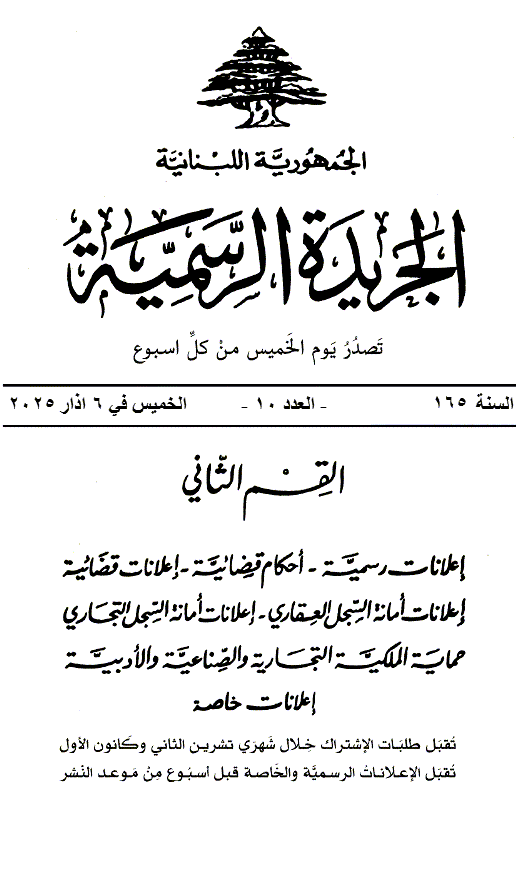 الجمهوريَّة اللبنانيَّة
الجريدة الرسميَّة
تَصدُرُ يَوم الخَميس منْ كلِّ اسبوع
السنة ١٦٥ - العدد ١٠ - الخميس في ٦ اذار ٢٠٢٥
القِسْم الثّاني
إعلانات رسميَّة - أحكام قضائيَّة - إعلانات قضائية
إعلانات أمانة السِّجل العقاري - إعلانات أمانة السِّجل التجاري
حماية الملكيَّة التجارية والصِّناعيَّة والأدبيَّة
إعلانات خاصة
تُقبَل طلبَات الإشتراك خِلال شَهرَي تشرين الثاني وكَانون الأول
تُقبَل الإعلاناتُ الرسميَّة والخَاصة قبل أسبُوع مِنْ مَوعد النَشر